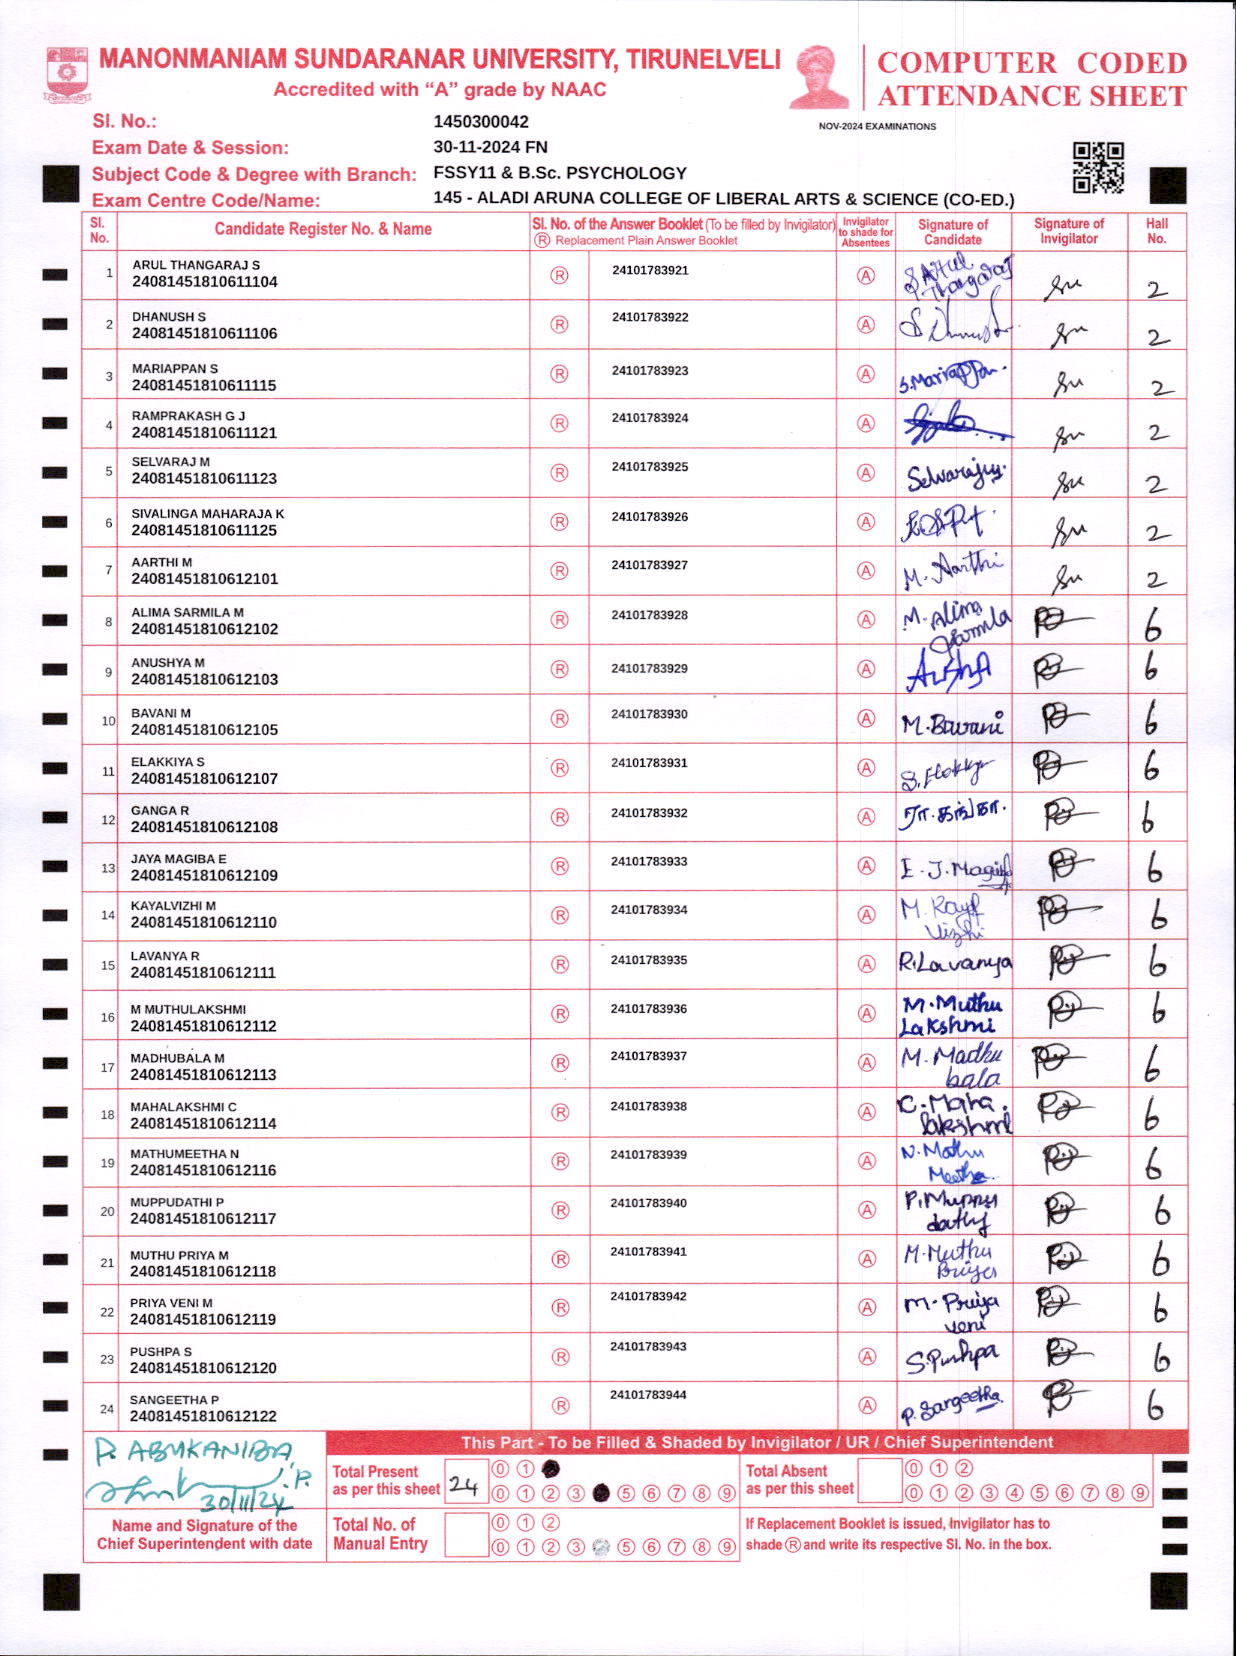 MANONMANIAM SUNDARANAR UNIVERSITY, TIRUNELVELI
Accredited with “A” grade by NAAC
COMPUTER CODED
ATTENDANCE SHEET
NOV-2024 EXAMINATIONS
Sl. No.: 1450300042
Exam Date & Session: 30-11-2024 FN
Subject Code & Degree with Branch: FSSY11 & B.Sc. PSYCHOLOGY
Exam Centre Code/Name: 145 - ALADI ARUNA COLLEGE OF LIBERAL ARTS & SCIENCE (CO-ED.)
Sl. No. Candidate Register No. & Name Sl. No. of the Answer Booklet (To be filled by Invigilator) Ⓡ Replacement Plain Answer Booklet Invigilator to shade for Absentees Signature of Candidate Signature of Invigilator Hall No.
1 ARUL THANGARAJ S Ⓡ 24101783921 Ⓐ S. Arul Thangaraj 2
24081451810611104
2 DHANUSH S Ⓡ 24101783922 Ⓐ 2
24081451810611106
3 MARIAPPAN S Ⓡ 24101783923 Ⓐ S.Mariappan. 2
24081451810611115
4 RAMPRAKASH G J Ⓡ 24101783924 Ⓐ 2
24081451810611121
5 SELVARAJ M Ⓡ 24101783925 Ⓐ 2
24081451810611123
6 SIVALINGA MAHARAJA K Ⓡ 24101783926 Ⓐ 2
24081451810611125
7 AARTHI M Ⓡ 24101783927 Ⓐ M. Aarthi 2
24081451810612101
8 ALIMA SARMILA M Ⓡ 24101783928 Ⓐ M. Alima Sarmila 6
24081451810612102
9 ANUSHYA M Ⓡ 24101783929 Ⓐ 6
24081451810612103
10 BAVANI M Ⓡ 24101783930 Ⓐ M.Bavani 6
24081451810612105
11 ELAKKIYA S Ⓡ 24101783931 Ⓐ 6
24081451810612107
12 GANGA R Ⓡ 24101783932 Ⓐ ரா.கங்கா. 6
24081451810612108
13 JAYA MAGIBA E Ⓡ 24101783933 Ⓐ E.J.Magiba 6
24081451810612109
14 KAYALVIZHI M Ⓡ 24101783934 Ⓐ M. Kayal Vizhi 6
24081451810612110
15 LAVANYA R Ⓡ 24101783935 Ⓐ R.Lavanya 6
24081451810612111
16 M MUTHULAKSHMI Ⓡ 24101783936 Ⓐ M.Muthu Lakshmi 6
24081451810612112
17 MADHUBALA M Ⓡ 24101783937 Ⓐ M. Madhu bala 6
24081451810612113
18 MAHALAKSHMI C Ⓡ 24101783938 Ⓐ C.Maha. lakshmi 6
24081451810612114
19 MATHUMEETHA N Ⓡ 24101783939 Ⓐ N.Mathu Meetha. 6
24081451810612116
20 MUPPUDATHI P Ⓡ 24101783940 Ⓐ P.Muppu dathy 6
24081451810612117
21 MUTHU PRIYA M Ⓡ 24101783941 Ⓐ M.Muthu Priya 6
24081451810612118
22 PRIYA VENI M Ⓡ 24101783942 Ⓐ M. Priya veni 6
24081451810612119
23 PUSHPA S Ⓡ 24101783943 Ⓐ S.Pushpa 6
24081451810612120
24 SANGEETHA P Ⓡ 24101783944 Ⓐ P. Sangeetha 6
24081451810612122
30/11/24
Name and Signature of the
Chief Superintendent with date
This Part - To be Filled & Shaded by Invigilator / UR / Chief Superintendent
Total Present as per this sheet 24
0 1
0 1 2 3 5 6 7 8 9
Total Absent as per this sheet
0 1 2
0 1 2 3 4 5 6 7 8 9
Total No. of Manual Entry
0 1 2
0 1 2 3 5 6 7 8 9
If Replacement Booklet is issued, Invigilator has to
shade Ⓡ and write its respective Sl. No. in the box.